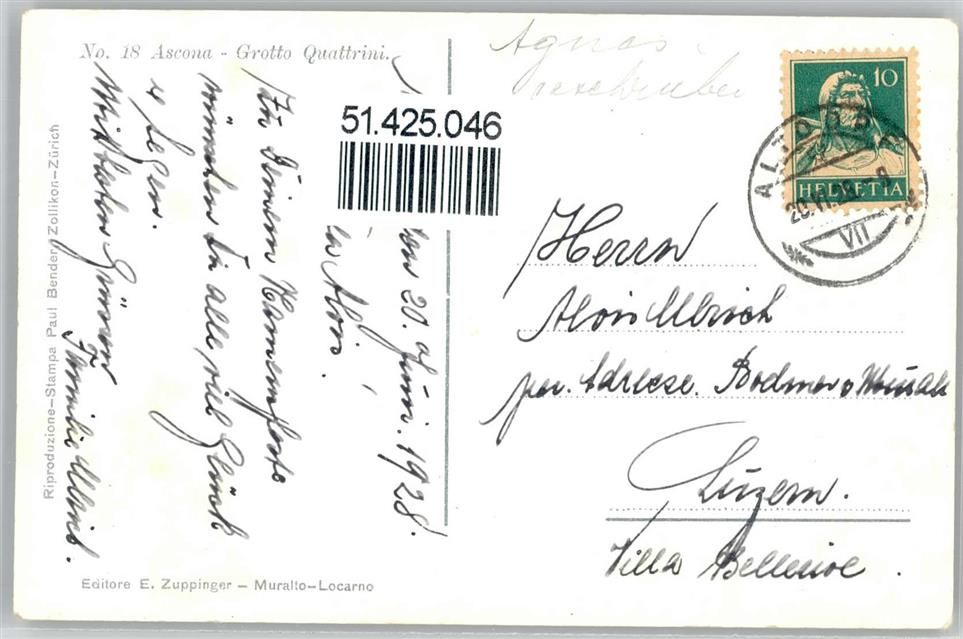 No. 18 Ascona - Grotto Quattrini.
Agnes
51.425.046
10
HELVETIA
ALTDORF
20.VI.28.-8
VII
den 20. Juni. 1928.
Alois.
Zu Deinem Namensfeste
wünschen Dir alle viel Glück
u Segen.
Mit besten Grüssen
Familie Ulrich.
Herrn
Alois Ulrich
per. Adresse. Bodmer
Luzern.
Villa Bellerive.
Riproduzione-Stampa Paul Bender, Zollikon-Zürich
Editore E. Zuppinger - Muralto-Locarno